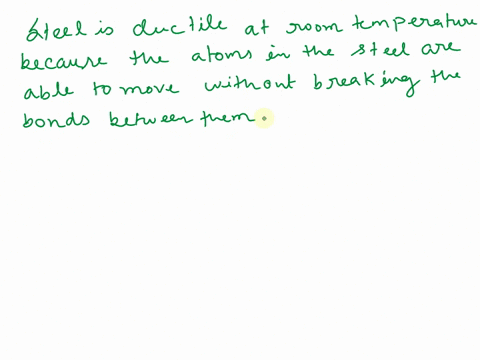 Steel is ductile at room temperature
because the atoms in the steel are
able to move without breaking the
bonds between them.